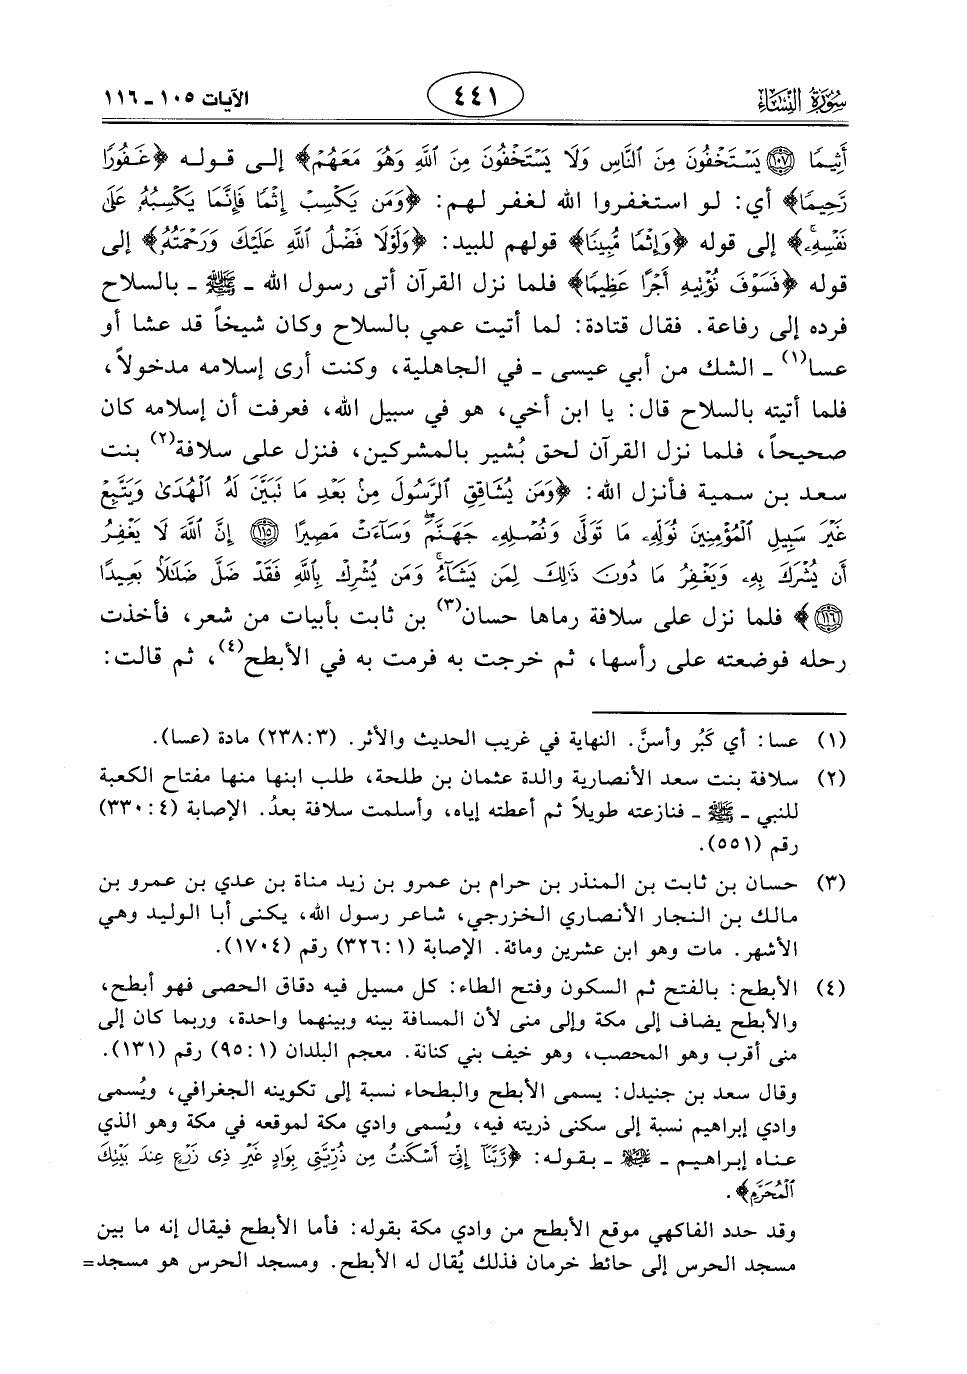 سورة النساء ٤٤١ الآيات ١٠٥ - ١١٦
أَثِيمًا ﴿١٠٧﴾ يَسْتَخْفُونَ مِنَ النَّاسِ وَلَا يَسْتَخْفُونَ مِنَ اللَّهِ وَهُوَ مَعَهُمْ﴾ إلى قوله ﴿غَفُورًا
رَّحِيمًا﴾ أي: لو استغفروا الله لغفر لهم: ﴿وَمَن يَكْسِبْ إِثْمًا فَإِنَّمَا يَكْسِبُهُ عَلَىٰ
نَفْسِهِ﴾ إلى قوله ﴿وَإِثْمًا مُّبِينًا﴾ قولهم للبيد: ﴿وَلَوْلَا فَضْلُ اللَّهِ عَلَيْكَ وَرَحْمَتُهُ﴾ إلى
قوله ﴿فَسَوْفَ نُؤْتِيهِ أَجْرًا عَظِيمًا﴾ فلما نزل القرآن أتى رسول الله - ﷺ - بالسلاح
فرده إلى رفاعة. فقال قتادة: لما أتيت عمي بالسلاح وكان شيخاً قد عشا أو
عسا(١) - الشك من أبي عيسى - في الجاهلية، وكنت أرى إسلامه مدخولاً،
فلما أتيته بالسلاح قال: يا ابن أخي، هو في سبيل الله، فعرفت أن إسلامه كان
صحيحاً، فلما نزل القرآن لحق بُشير بالمشركين، فنزل على سلافة(٢) بنت
سعد بن سمية فأنزل الله: ﴿وَمَن يُشَاقِقِ الرَّسُولَ مِنْ بَعْدِ مَا تَبَيَّنَ لَهُ الْهُدَىٰ وَيَتَّبِعْ
غَيْرَ سَبِيلِ الْمُؤْمِنِينَ نُوَلِّهِ مَا تَوَلَّىٰ وَنُصْلِهِ جَهَنَّمَ وَسَاءَتْ مَصِيرًا ﴿١١٥﴾ إِنَّ اللَّهَ لَا يَغْفِرُ
أَن يُشْرَكَ بِهِ وَيَغْفِرُ مَا دُونَ ذَٰلِكَ لِمَن يَشَاءُ وَمَن يُشْرِكْ بِاللَّهِ فَقَدْ ضَلَّ ضَلَالًا بَعِيدًا
﴿١١٦﴾﴾ فلما نزل على سلافة رماها حسان(٣) بن ثابت بأبيات من شعر، فأخذت
رحله فوضعته على رأسها، ثم خرجت به فرمت به في الأبطح(٤)، ثم قالت:
(١) عسا: أي كَبُر وأسنَّ. النهاية في غريب الحديث والأثر. (٢٣٨:٣) مادة (عسا).
(٢) سلافة بنت سعد الأنصارية والدة عثمان بن طلحة، طلب ابنها منها مفتاح الكعبة
للنبي - ﷺ - فنازعته طويلاً ثم أعطته إياه، وأسلمت سلافة بعدُ. الإصابة (٣٣٠:٤)
رقم (٥٥١).
(٣) حسان بن ثابت بن المنذر بن حرام بن عمرو بن زيد مناة بن عدي بن عمرو بن
مالك بن النجار الأنصاري الخزرجي، شاعر رسول الله، يكنى أبا الوليد وهي
الأشهر. مات وهو ابن عشرين ومائة. الإصابة (٣٢٦:١) رقم (١٧٠٤).
(٤) الأبطح: بالفتح ثم السكون وفتح الطاء: كل مسيل فيه دقاق الحصى فهو أبطح،
والأبطح يضاف إلى مكة وإلى منى لأن المسافة بينه وبينهما واحدة، وربما كان إلى
منى أقرب وهو المحصب، وهو خيف بني كنانة. معجم البلدان (٩٥:١) رقم (١٣١).
وقال سعد بن جنيدل: يسمى الأبطح والبطحاء نسبة إلى تكوينه الجغرافي، ويُسمى
وادي إبراهيم نسبة إلى سكنى ذريته فيه، ويُسمى وادي مكة لموقعه في مكة وهو الذي
عناه إبراهيم - ﷺ - بقوله: ﴿رَّبَّنَا إِنِّي أَسْكَنتُ مِن ذُرِّيَّتِي بِوَادٍ غَيْرِ ذِي زَرْعٍ عِندَ بَيْتِكَ
الْمُحَرَّمِ﴾.
وقد حدد الفاكهي موقع الأبطح من وادي مكة بقوله: فأما الأبطح فيقال إنه ما بين
مسجد الحرس إلى حائط خرمان فذلك يُقال له الأبطح. ومسجد الحرس هو مسجد=